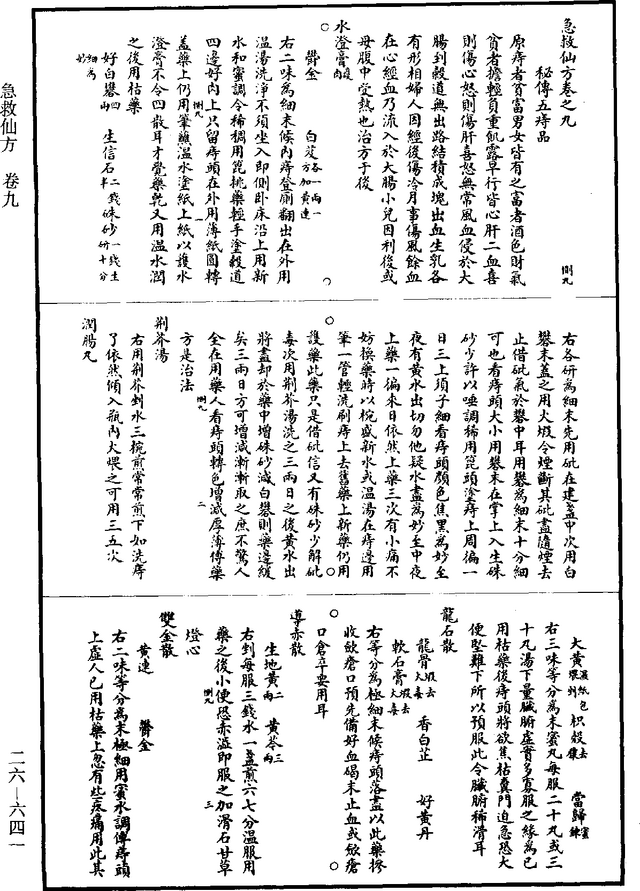 急救仙方卷之九
秘傳五痔品
原痔者貧富男女皆有之富者酒色財氣
貧者擔輕負重飢露早行皆心肝二血喜
則傷心怒則傷肝喜怒無常風血侵於大
腸到穀道無出路結積成塊出血生乳各
有形相婦人因經後傷冷月事傷風餘血
在心經血乃流入於大腸小兒因利後或
母腹中受熱也治方于後
水澄膏
鬱金 白芨各一兩一方加黃連
右二味為細末候內痔登廁翻出在外用
溫湯洗淨不須坐入即側臥床沿上用新
水和蜜調令稀稠用箆挑藥輕手塗穀道
四邊好肉上只留痔頭在外用薄紙圓轉
蓋藥上仍用筆蘸溫水塗紙上紙以護水
澄膏不令四散耳才覺藥乾又用溫水潤
之後用枯藥
好白礬四 生信石二錢半 硃砂一錢生研十分細為妙
右各研為細末先用砒在建盞中次用白
礬末蓋之用火煅令煙斷其砒盡隨煙去
止借砒氣於礬中耳用礬為細末十分細
可也看痔頭大小用礬末在掌上入生硃
砂少許以唾調稀用箆頭塗痔上周徧一
日三上須子細看痔頭顏色焦黑為妙至
夜有黃水出切勿他疑水盡為妙至中夜
上藥一徧來日依然上藥三次有小痛不
妨換藥時以椀盛新水或溫湯在痔邊用
筆一管輕洗刷痔上去舊藥上新藥仍用
護藥此藥只是借砒信又有硃砂少解砒
毒次用荊芥湯洗之三兩日之後黃水出
將盡却於藥中增硃砂減白礬則藥邊緩
矣三兩日方可增減漸漸取之庶不驚人
全在用藥人看痔頭轉色增減厚薄傅藥
方是治法
荊芥湯
右用荊芥剉水三椀煎常常煎下如洗痔
了依然傾入瓶內火煨之可用三五次
潤腸丸
大黃濕紙包煨 枳殼去穰 當歸
右三味等分為末蜜丸每服二十丸或三
十丸湯下量臟腑虛實多寡服之緣為已
用枯藥後痔頭將欲焦枯糞門迫急恐大
便堅難下所以預服此令臟腑稀滑耳
龍石散
龍骨煅去火毒 香白芷 好黃丹
軟石膏煅去火毒
右等分為極細末候痔頭落盡以此藥摻
收斂瘡口預先備好血碣末止血或斂瘡
口倉卒要用耳
導赤散
生地黃二兩 黃芩三兩
右剉每服三錢水一盞煎六七分溫服用
藥之後小便恐赤澁即服之加滑石甘草
燈心
雙金散
黃連 鬱金
右二味等分為末極細用蜜水調傅痔頭
上虛人已用枯藥上忽有些疼痛用此其
急救仙方 卷九
二六—六四一